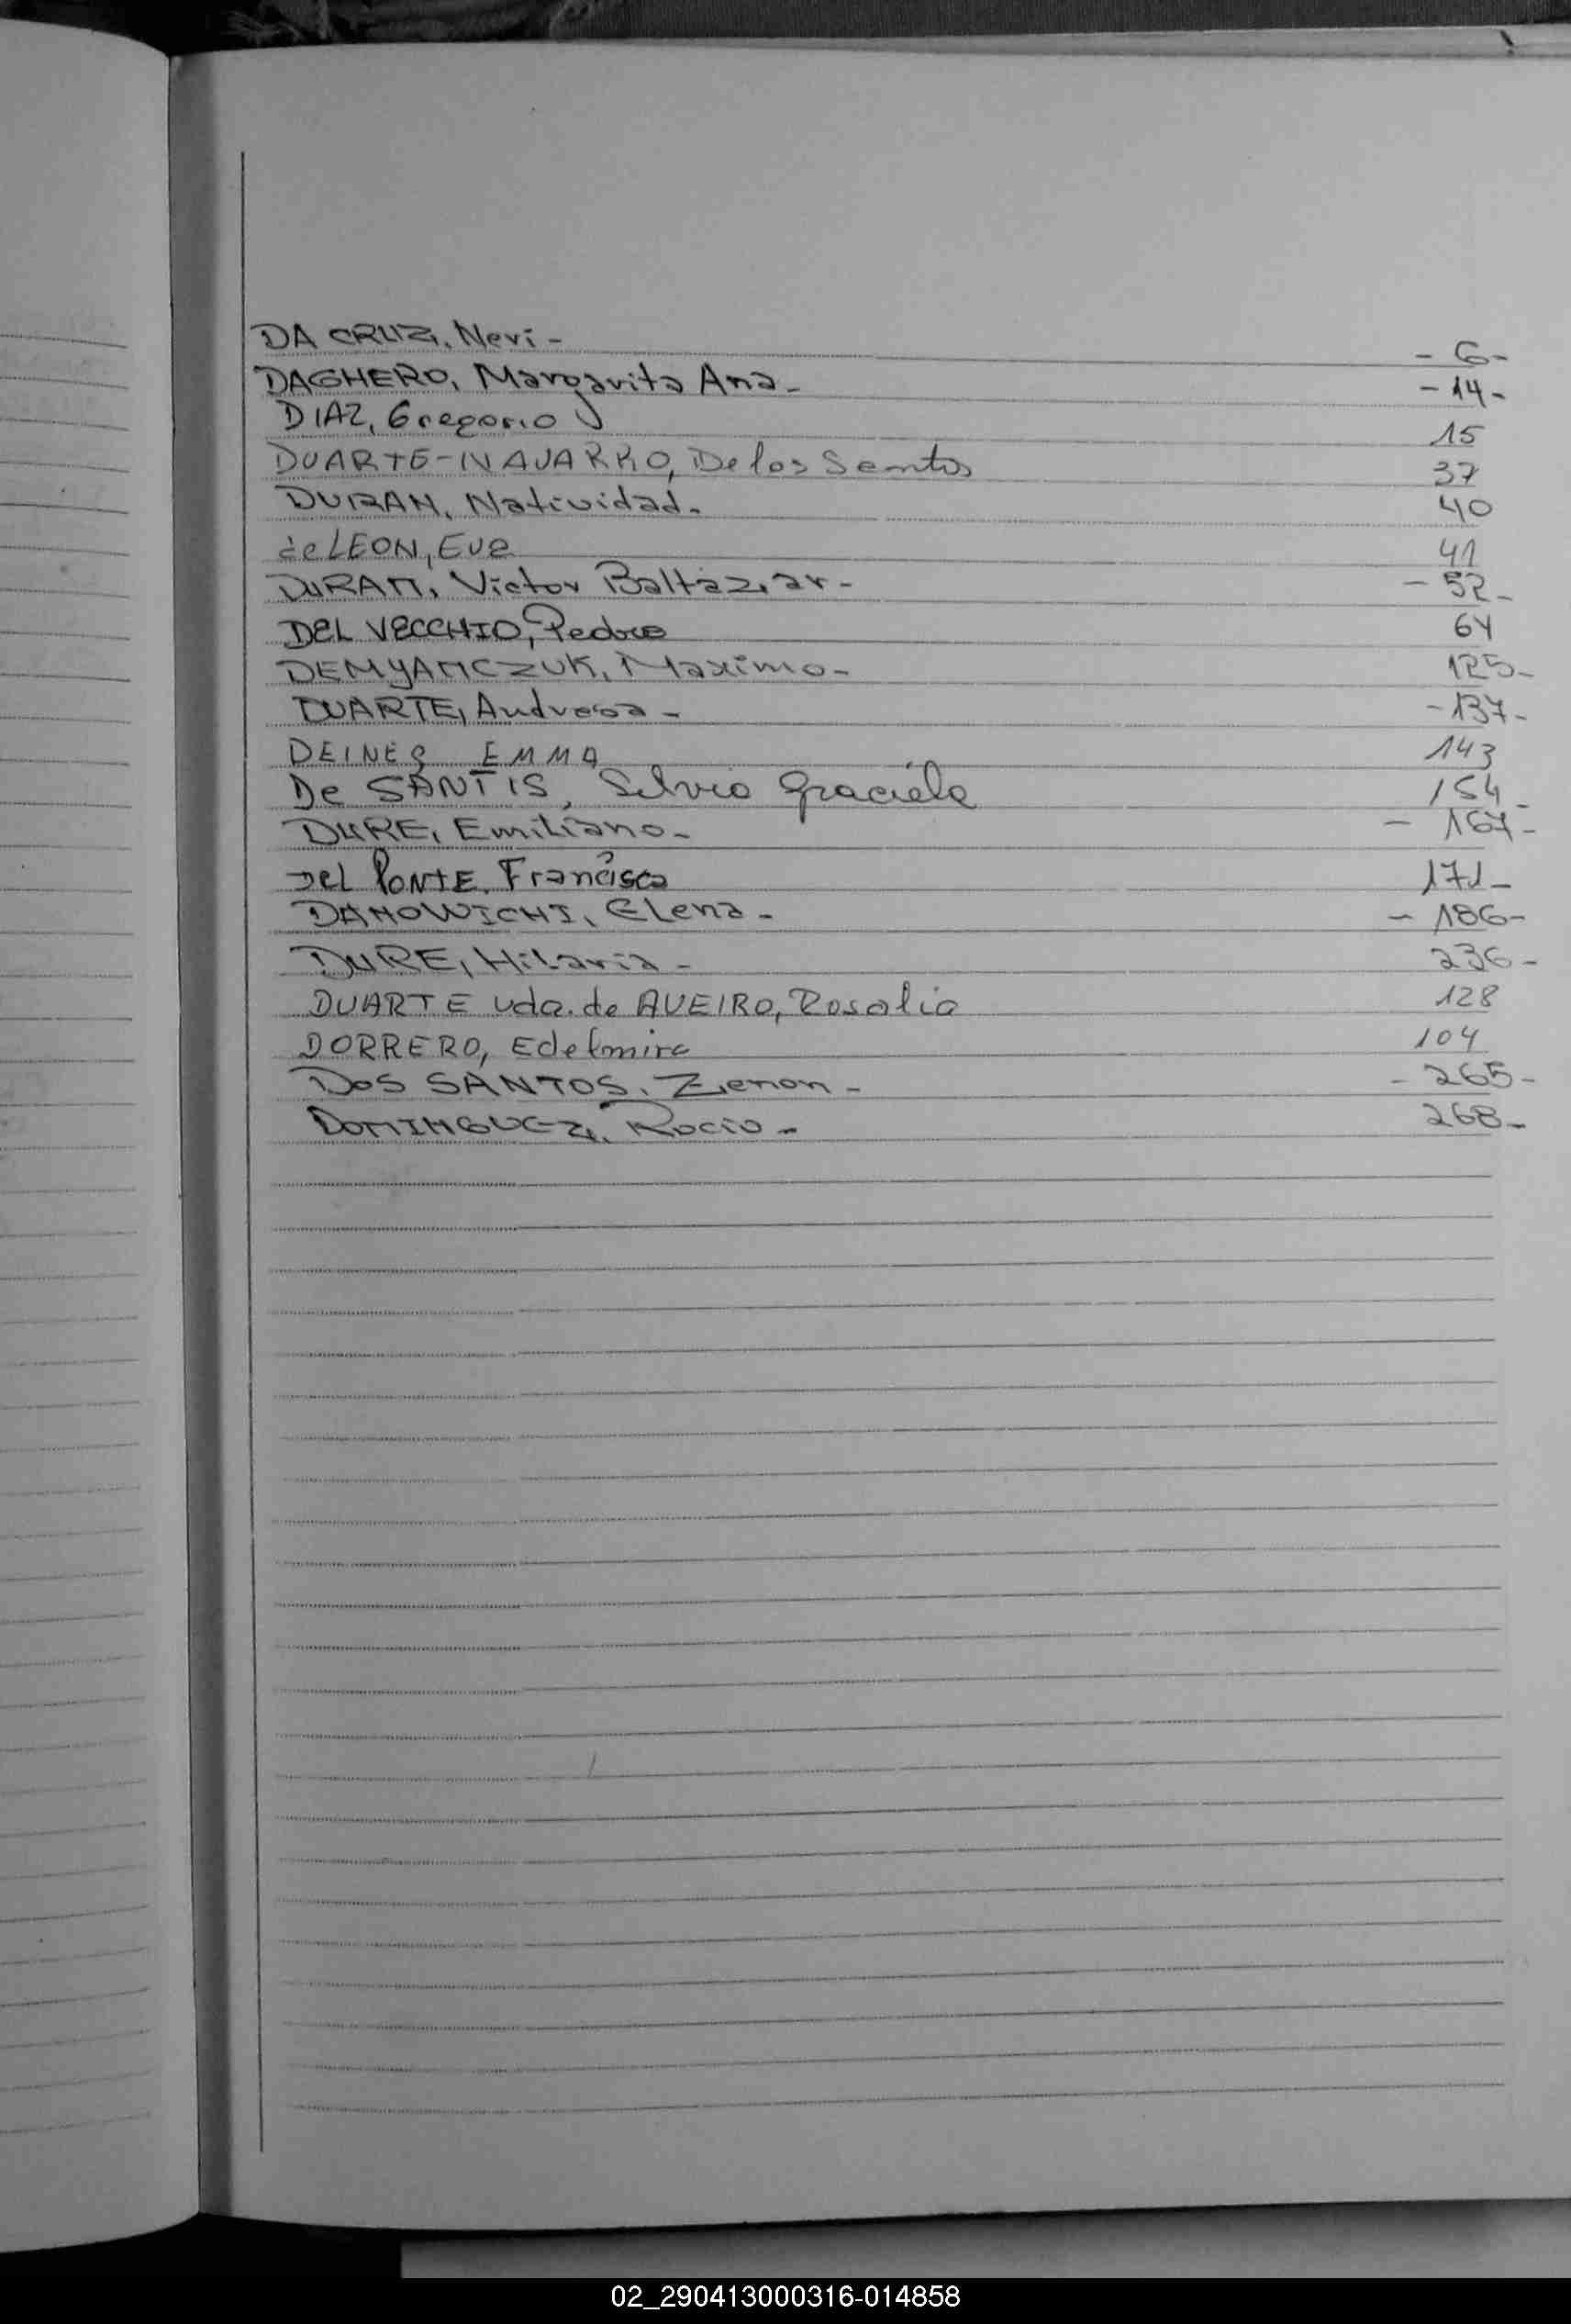 DA CRUZ, Nevi - - 6 -
DAGHERO, Margarita Ana - - 14 -
DIAZ, Gregorio 15
DUARTE-NAVARRO, De los Santos 37
DURAN, Natividad. 40
de LEON, Eva 41
DURAN, Victor Baltazar - - 52 -
DEL VECCHIO, Pedro 64
DEMYANCZUK, Maximo - 125 -
DUARTE, Andresa - - 137 -
DEINES EMMA 143
De SANTIS, Silvia Graciela 154 -
DURE, Emiliano - - 167 -
DEL PONTE, Francisca 171 -
DANOWICHI, Elena - - 186 -
DURE, Hilaria - 236 -
DUARTE vda. de AVEIRO, Rosalia 128
DORRERO, Edelmira 104
Dos SANTOS, Zenon - - 265 -
DOMINGUEZ, Rocio - 268 -
02_290413000316-014858